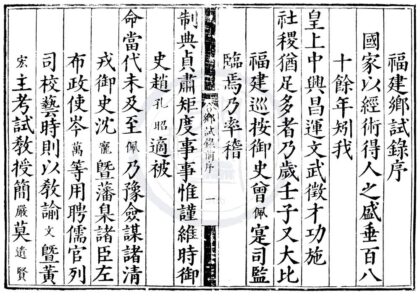 福建鄉試錄序
國家以經術得人之盛垂百八
十餘年矧我
皇上中興昌運文武徵才功施
社稷猶足多者乃歲壬子又大比
福建巡按御史曾佩寔司監
臨焉乃率稽
鄉試錄前序 一
制典貞肅矩度事事惟謹維時御
史趙孔昭適被
命當代未及至佩乃豫僉謀諸清
戎御史沈寵曁藩臬諸臣左
布政使岑萬等用聘儒官列
司校藝時則以教諭文曁黃
宏主考試教授簡嚴莫道賢